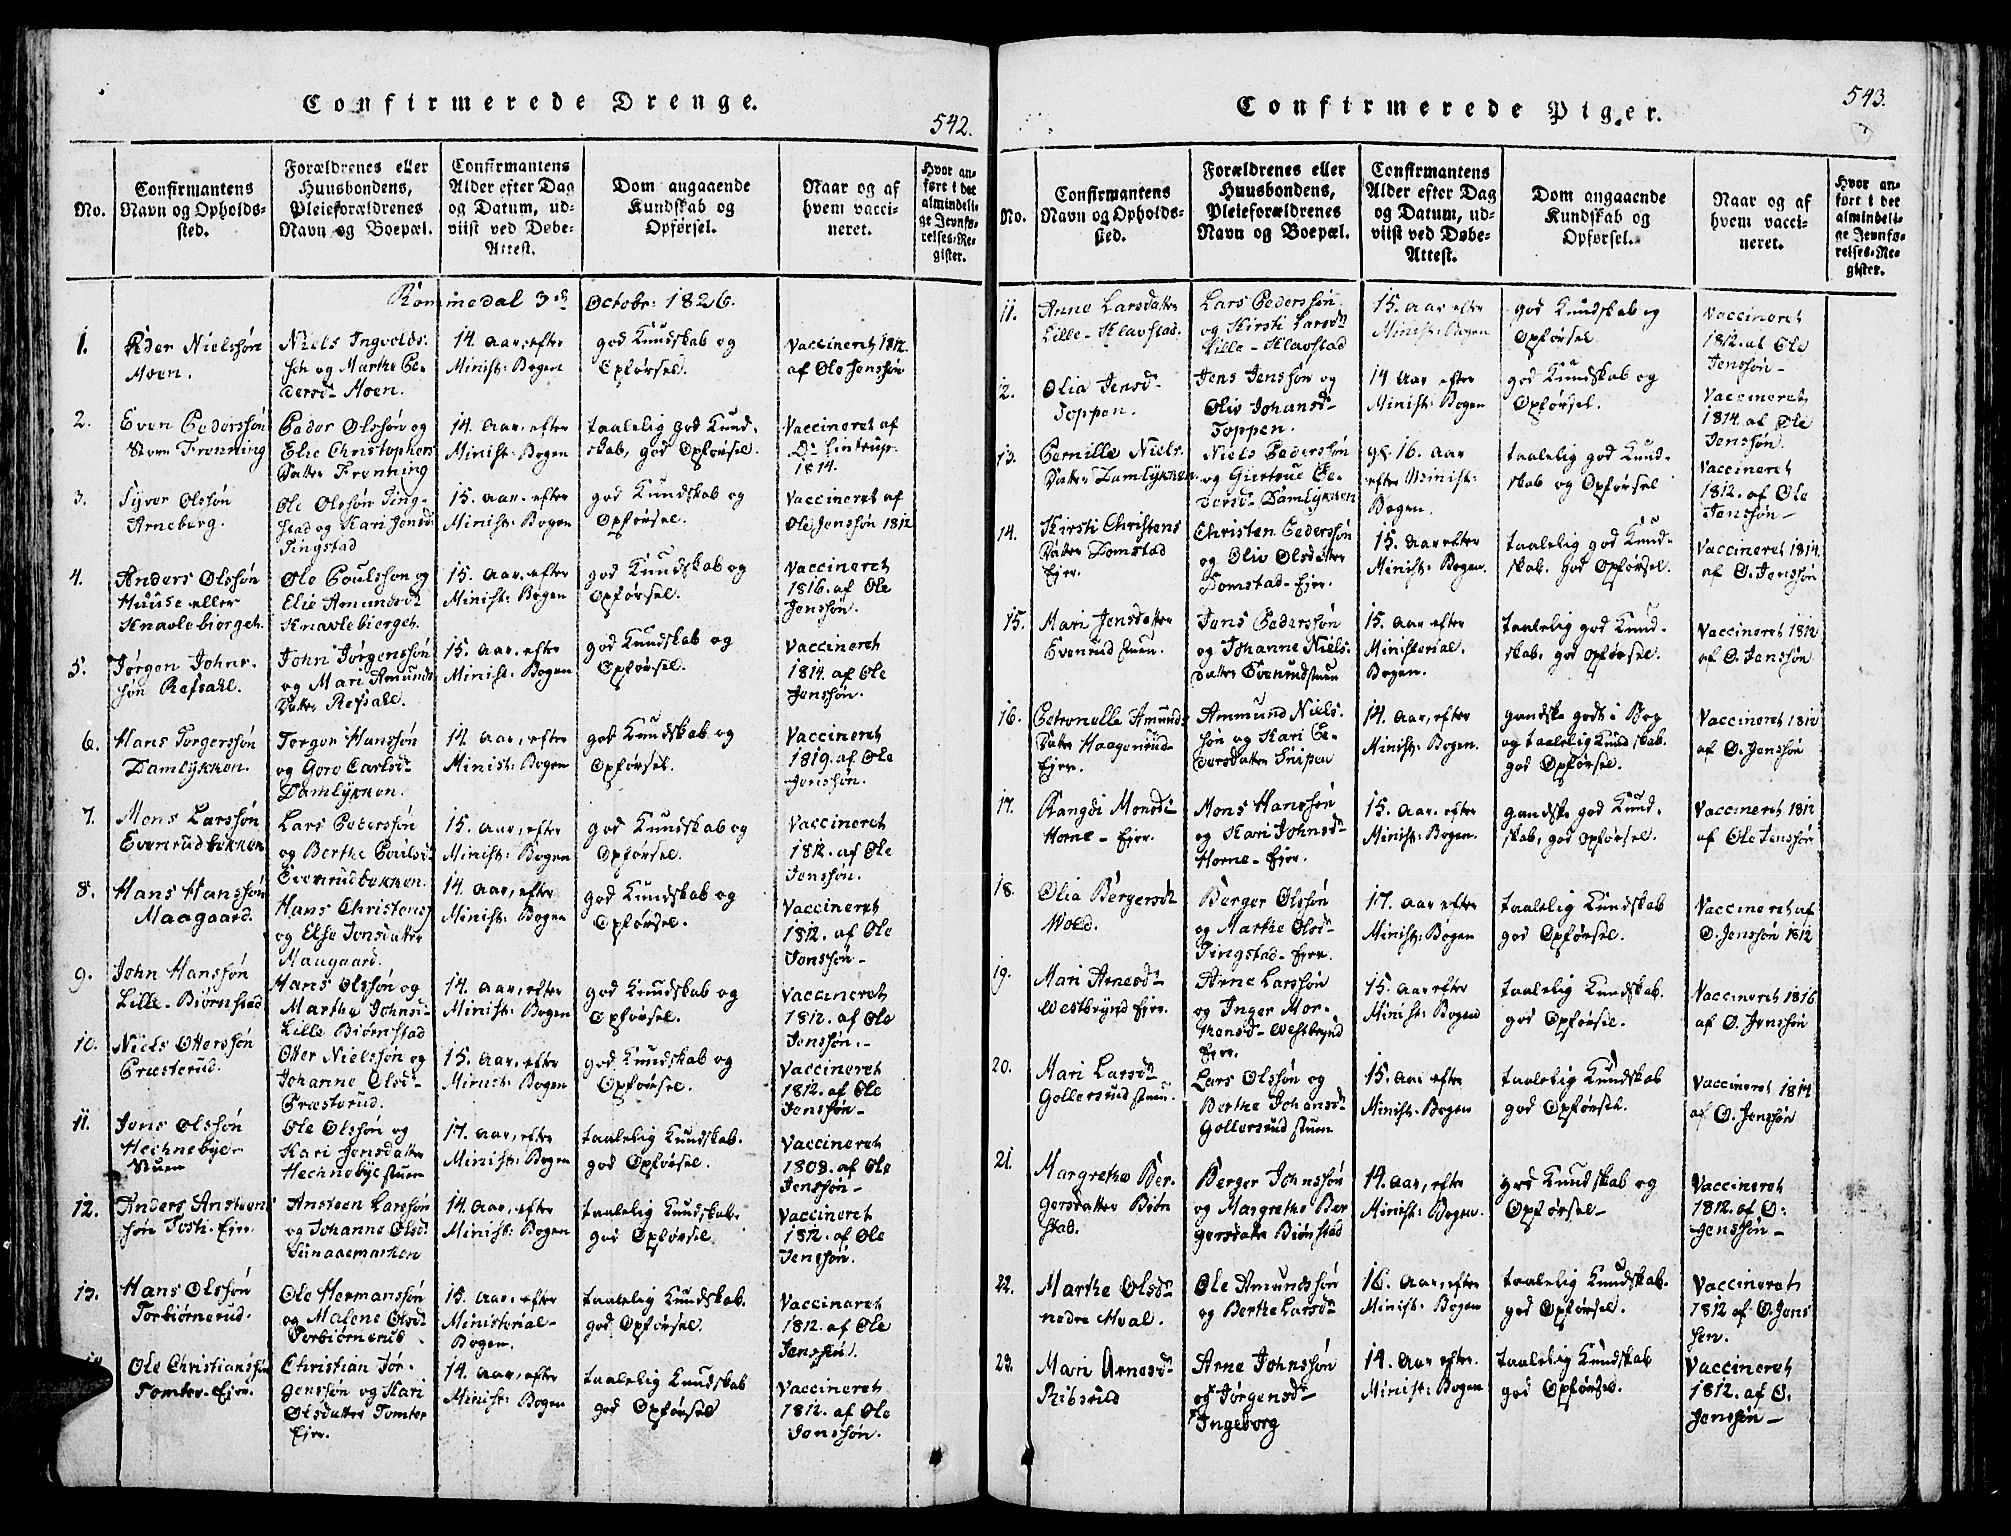 Confirmerede Drenge.
542.
No.
Confirmantens
Navn og Opholds-
sted.
Forældrenes eller
Huusbondens,
Pleieforældrenes
Navn og Boepæl.
Confirmantens
Alder efter Dag
og Datum, ud-
viist ved Døbe-
Attest.
Dom angaaende
Kundskab og
Opførsel.
Naar og af
hvem vacci-
neret.
Hvor an-
ført i det
almindeli-
ge Jevnfø-
relses-Re-
gister.
Rommedal 3die Octobr: 1826.
1.
Peder Nielssøn
Moen.
Niels Ingvolds-
søn og Marthe Pe-
dersd- Moen.
14. Aar, efter
Minist: Bogen
god Kundskab og
Opførsel.
Vaccineret 1812.
af Ole Jenssøn
2.
Even Pederssøn
Store Frønning
Peder Olssøn og
Elie Christophers
Datter Frønning
14. Aar, efter
Minist: Bogen
taalelig god Kund-
skab, god Opførsel.
Vaccineret af
Dr Lintrup.
1814.
3.
Syver Olssøn
Arneberg.
Ole Olssøn Ting-
stad og Kari Jensd
Tingstad
15. Aar, efter
Minist: Bogen
god Kundskab og
Opførsel.
Vaccineret af
Ole Jenssøn 1812
4.
Anders Olssøn
Huuse eller
Knavlebierget.
Ole Poulssøn og
Elie Amundsdr
Knavlebierget.
15. Aar, efter
Minist: Bogen
god Kundskab og
Opførsel.
Vaccineret
1816. af Ole
Jenssøn.
5.
Jørgen Johns-
søn Refsahl.
John Jørgenssøn
og Mari Amunds
Datter Refsale.
15. Aar, efter
Minist: Bogen
god Kundskab og
Opførsel.
Vaccineret
1814. af Ole
Jenssøn.
6.
Hans Torgerssøn
Damlykken.
Torger Hanssøn
og Goro Carlsdr
Damlykken.
14. Aar, efter
Minist: Bogen
god Kundskab og
Opførsel.
Vaccineret
1819. af Ole
Jenssøn.
7.
Mons Larssøn
Evenrudbekken
Lars Pederssøn
og Berthe Poulsd
Evenrudbekken.
15. Aar, efter
Minist: Bogen
god Kundskab og
Opførsel.
Vaccineret
1812. af Ole
Jenssøn.
8.
Hans Hanssøn
Maagaard.
Hans Christens
og Else Jensdatter
Maagaard.
14. Aar, efter
Minist: Bogen
god Kundskab og
Opførsel.
Vaccineret
1812. af Ole
Jenssøn-
9.
John Hanssøn
Lille-Biørnstad
Hans Olssøn og
Marthe Johnsd
Lille Biørnstad
14. Aar, efter
Minist: Bogen
god Kundskab og
Opførsel.
Vaccineret
1812. af Ole
Jenssøn.-
10.
Niels Otterssøn
Præsterud.
Otter Nielssøn og
Johanne Olsd-
Præsterud.
15. Aar, efter
Minist: Bogen
god Kundskab og
Opførsel.
Vaccineret
1812. af Ole
Jenssøn-
11.
Jens Olssøn
Hechnebye-
stuen
Ole Olssøn og
Kari Jensdatter
Hechnebye stuen
17. Aar, efter
Minist: Bogen
taalelig Kundskab.
god Opførsel.
Vaccineret
1808. af Ole
Jenssøn-
12.
Anders Ansteen
søn Tosti. Ejer.
Ansteen Larssøn
og Johanne Olsd.
14. Aar, efter
Minist: Bogen
taalelig Kundskab.
god Opførsel
Vaccineret
1812. af Ole
Jenssøn.
13.
Hans Olssøn
Torbiørnerud.
Ole Hermanssøn
og Malene Olsd
Torbiørnerud.
15. Aar, efter
Ministerial-
Bogen.
taalelig Kundskab.
god Opførsel.
Vaccineret
1812. af Ole
Jenssøn.
14
Ole Christianssøn
Tomter. Ejer.
Christian Jør-
genssøn og Kari
Olsdatter Tomter
Ejer.
14. Aar, efter
Minist: Bogen
taalelig Kundskab
god Opførsel
Vaccineret
1812. af Ole
Jenssøn.
Confirmerede Piger.
543.
No.
Confirmantens
Navn og Opholds-
sted.
Forældrenes eller
Huusbondens,
Pleieforældrenes
Navn og Boepæl.
Confirmantens
Alder efter Dag
og Datum, ud-
viist ved Døbe-
Attest.
Dom angaaende
Kundskab og
Opførsel.
Naar og af
hvem vacci-
neret.
Hvor an-
ført i det
almindeli-
ge Jevnfø-
relses-Re-
gister.
11.
Anne Larsdatter
Lille-Klavstad.
Lars Pederssøn
og Kirsti Larsdr
Lille-Klavstad
15. Aar efter
Minist: Bogen
god Kundskab og
Opførsel
Vaccineret
1812. af Ole
Jenssøn-
12.
Olia Jensd-
Toppen.
Jens Jenssøn og
Oliv Johansd-
Toppen.
14 Aar efter
Minist: Bogen
god Kundskab og
Opførsel.
Vaccineret
1814. af Ole
Jenssøn.
13.
Pernille Niels-
Datter Damlykken.
Niels Pederssøn
og Giertrue Pe-
dersd- Damlykken
gl. 16. Aar
efter Minist:
Bogen.
taalelig god Kund-
skab og Opførsel
Vaccineret
1812. af Ole
Jenssøn-
14.
Kirsti Christens
Datter Domstad
Ejer.
Christen Pederssøn
og Oliv Olsdatter
Domstad-Ejer.
15. Aar efter
Minist: Bogen.
taalelig god Kund-
skab. god Opførsel.
Vaccineret 1814.
af O. Jenssøn
15.
Mari Jensdatter
Evenrud stuen.
Jens Pederssøn
og Johanne Niels-
Datter Evenrudstuen
15. Aar efter
Ministerial.
Bogen.
taalelig god Kund-
skab. god Opførsel.
Vaccineret 1812
af O. Jenssøn
16.
Petronelle Amund-
Datter Haagenrud-
Ejer.
Ammund Niels-
søn og Kari Pe-
dersdatter Snipen
14. Aar, efter
Minist: Bogen.
gandske godt i Bog
og taalelig Kundskab.
god Opførsel.
Vaccineret 1812
af O. Jenssøn
17.
Rangdi Monsdr
Horne-Ejer.
Mons Hanssøn
og Kari Johnsd-
Horne-Ejer.
15. Aar, efter
Minist: Bogen.
gandske god Kund-
skab, god Opførsel.
Vaccineret 1812
af Ole Jenssøn
18.
Olia Bergersdr
Wold.
Berger Olssøn
og Marthe Olsd-
Tingstad-Ejer.
17. Aar efter
Minist: Bogen
taalelig Kundskab
god Opførsel.
Vaccineret af
O. Jenssøn 1812
19.
Mari Arnesdr
Westbrynd Ejer.
Arne Larssøn
og Inger Mor-
thensd- Westbrynd
Ejer.
15. Aar efter
Minist: Bogen
taalelig Kundskab.
god Opførsel.
Vaccineret 1816
af O. Jenssøn
20.
Mari Larsdr
Gollersrud stuen.
Lars Olssøn og
Berthe Johansdr
Gollersrud stuen
15. Aar efter
Minist: Bogen
taalelig Kundskab
god Opførsel.
Vaccineret 1814
af O. Jenssøn
21.
Margrethe Ber-
gersdatter Biørn
stad.
Berger Johnssøn
og Margrethe Ber
gersdatter Biørnstad
14. Aar, efter
Minist: Bogen.
god Kundskab og
Opførsel-
Vaccineret
1812. af O:
Jenssøn-
22.
Marthe Olsdr
nedre Hval.
Ole Amundssøn
og Berthe Larsdr
16. Aar, efter
Minist: Bogen
taalelig Kundskab.
god Opførsel.
Vaccineret
1812 af O. Jens
sen.
23.
Mari Arnesdr
Ribsrud
Arne Johnssøn
og Jørgensdr-
Ingeborg
14. Aar efter.
Minist: Bogen
taalelig Kundskab
god Opførsel.
Vaccineret
1812. af O:
Jenssøn-